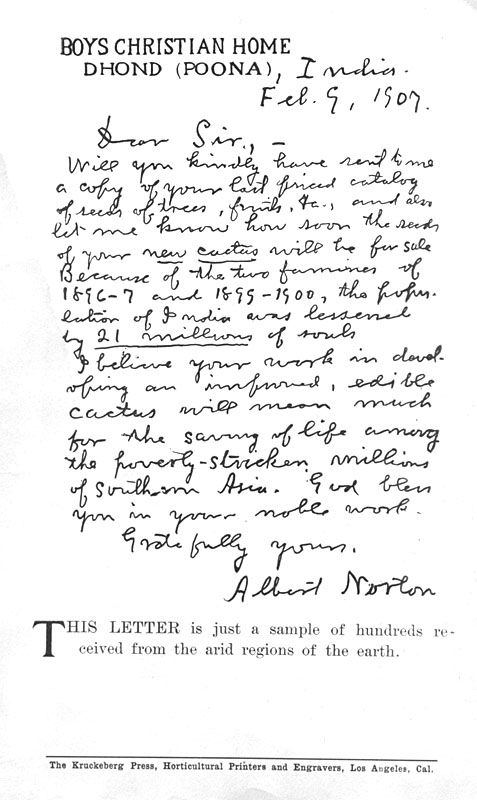 BOYS CHRISTIAN HOME
DHOND (POONA), India.
Feb. 9, 1907.
Dear Sir, –
Will you kindly have sent to me
a copy of your last priced catalog
of seeds of trees, fruits, &c., and also
let me know how soon the seeds
of your new cactus will be for sale
Because of the two famines of
1896-7 and 1899-1900, the popu-
lation of India was lessened
by 21 millions of souls
I believe your work in devel-
oping an improved, edible
cactus will mean much
for the saving of life among
the poverty-stricken millions
of Southern Asia. God bless
you in your noble work.
Gratefully yours.
Albert Norton
THIS LETTER is just a sample of hundreds re-
ceived from the arid regions of the earth.
The Kruckeberg Press, Horticultural Printers and Engravers, Los Angeles, Cal.